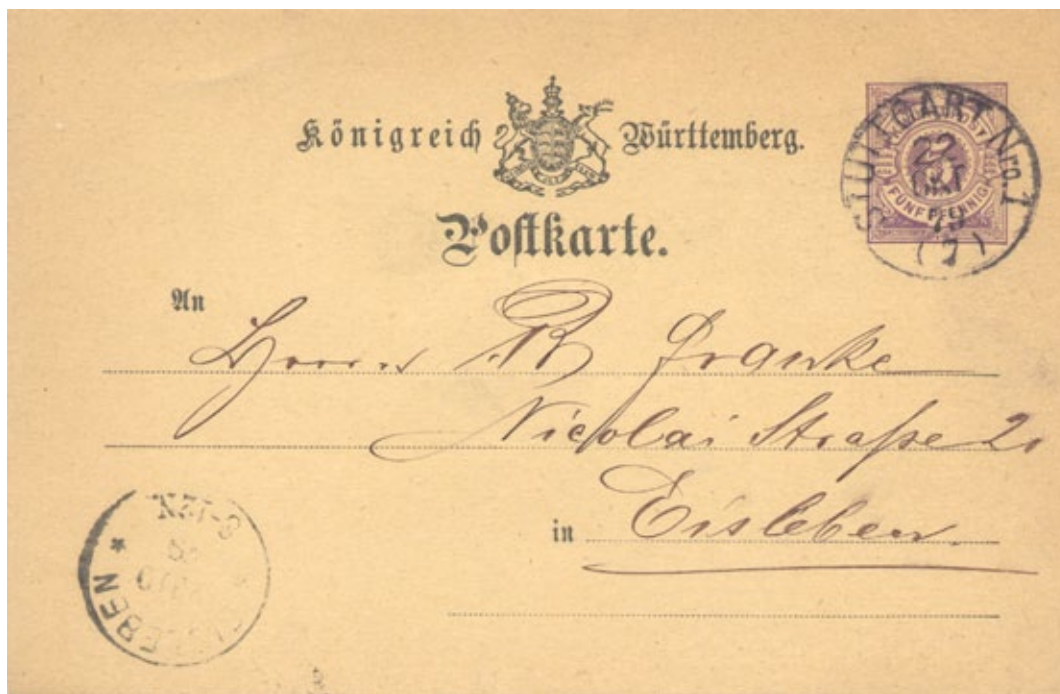 Königreich Württemberg.
Postkarte.
STUTTGART Nro. 1
22
OKT
79
(7)
FÜNF PFENNIG
An
Herrn R Franke
Nicolai Straße 21
in Eisleben.
EISLEBEN
8-12N